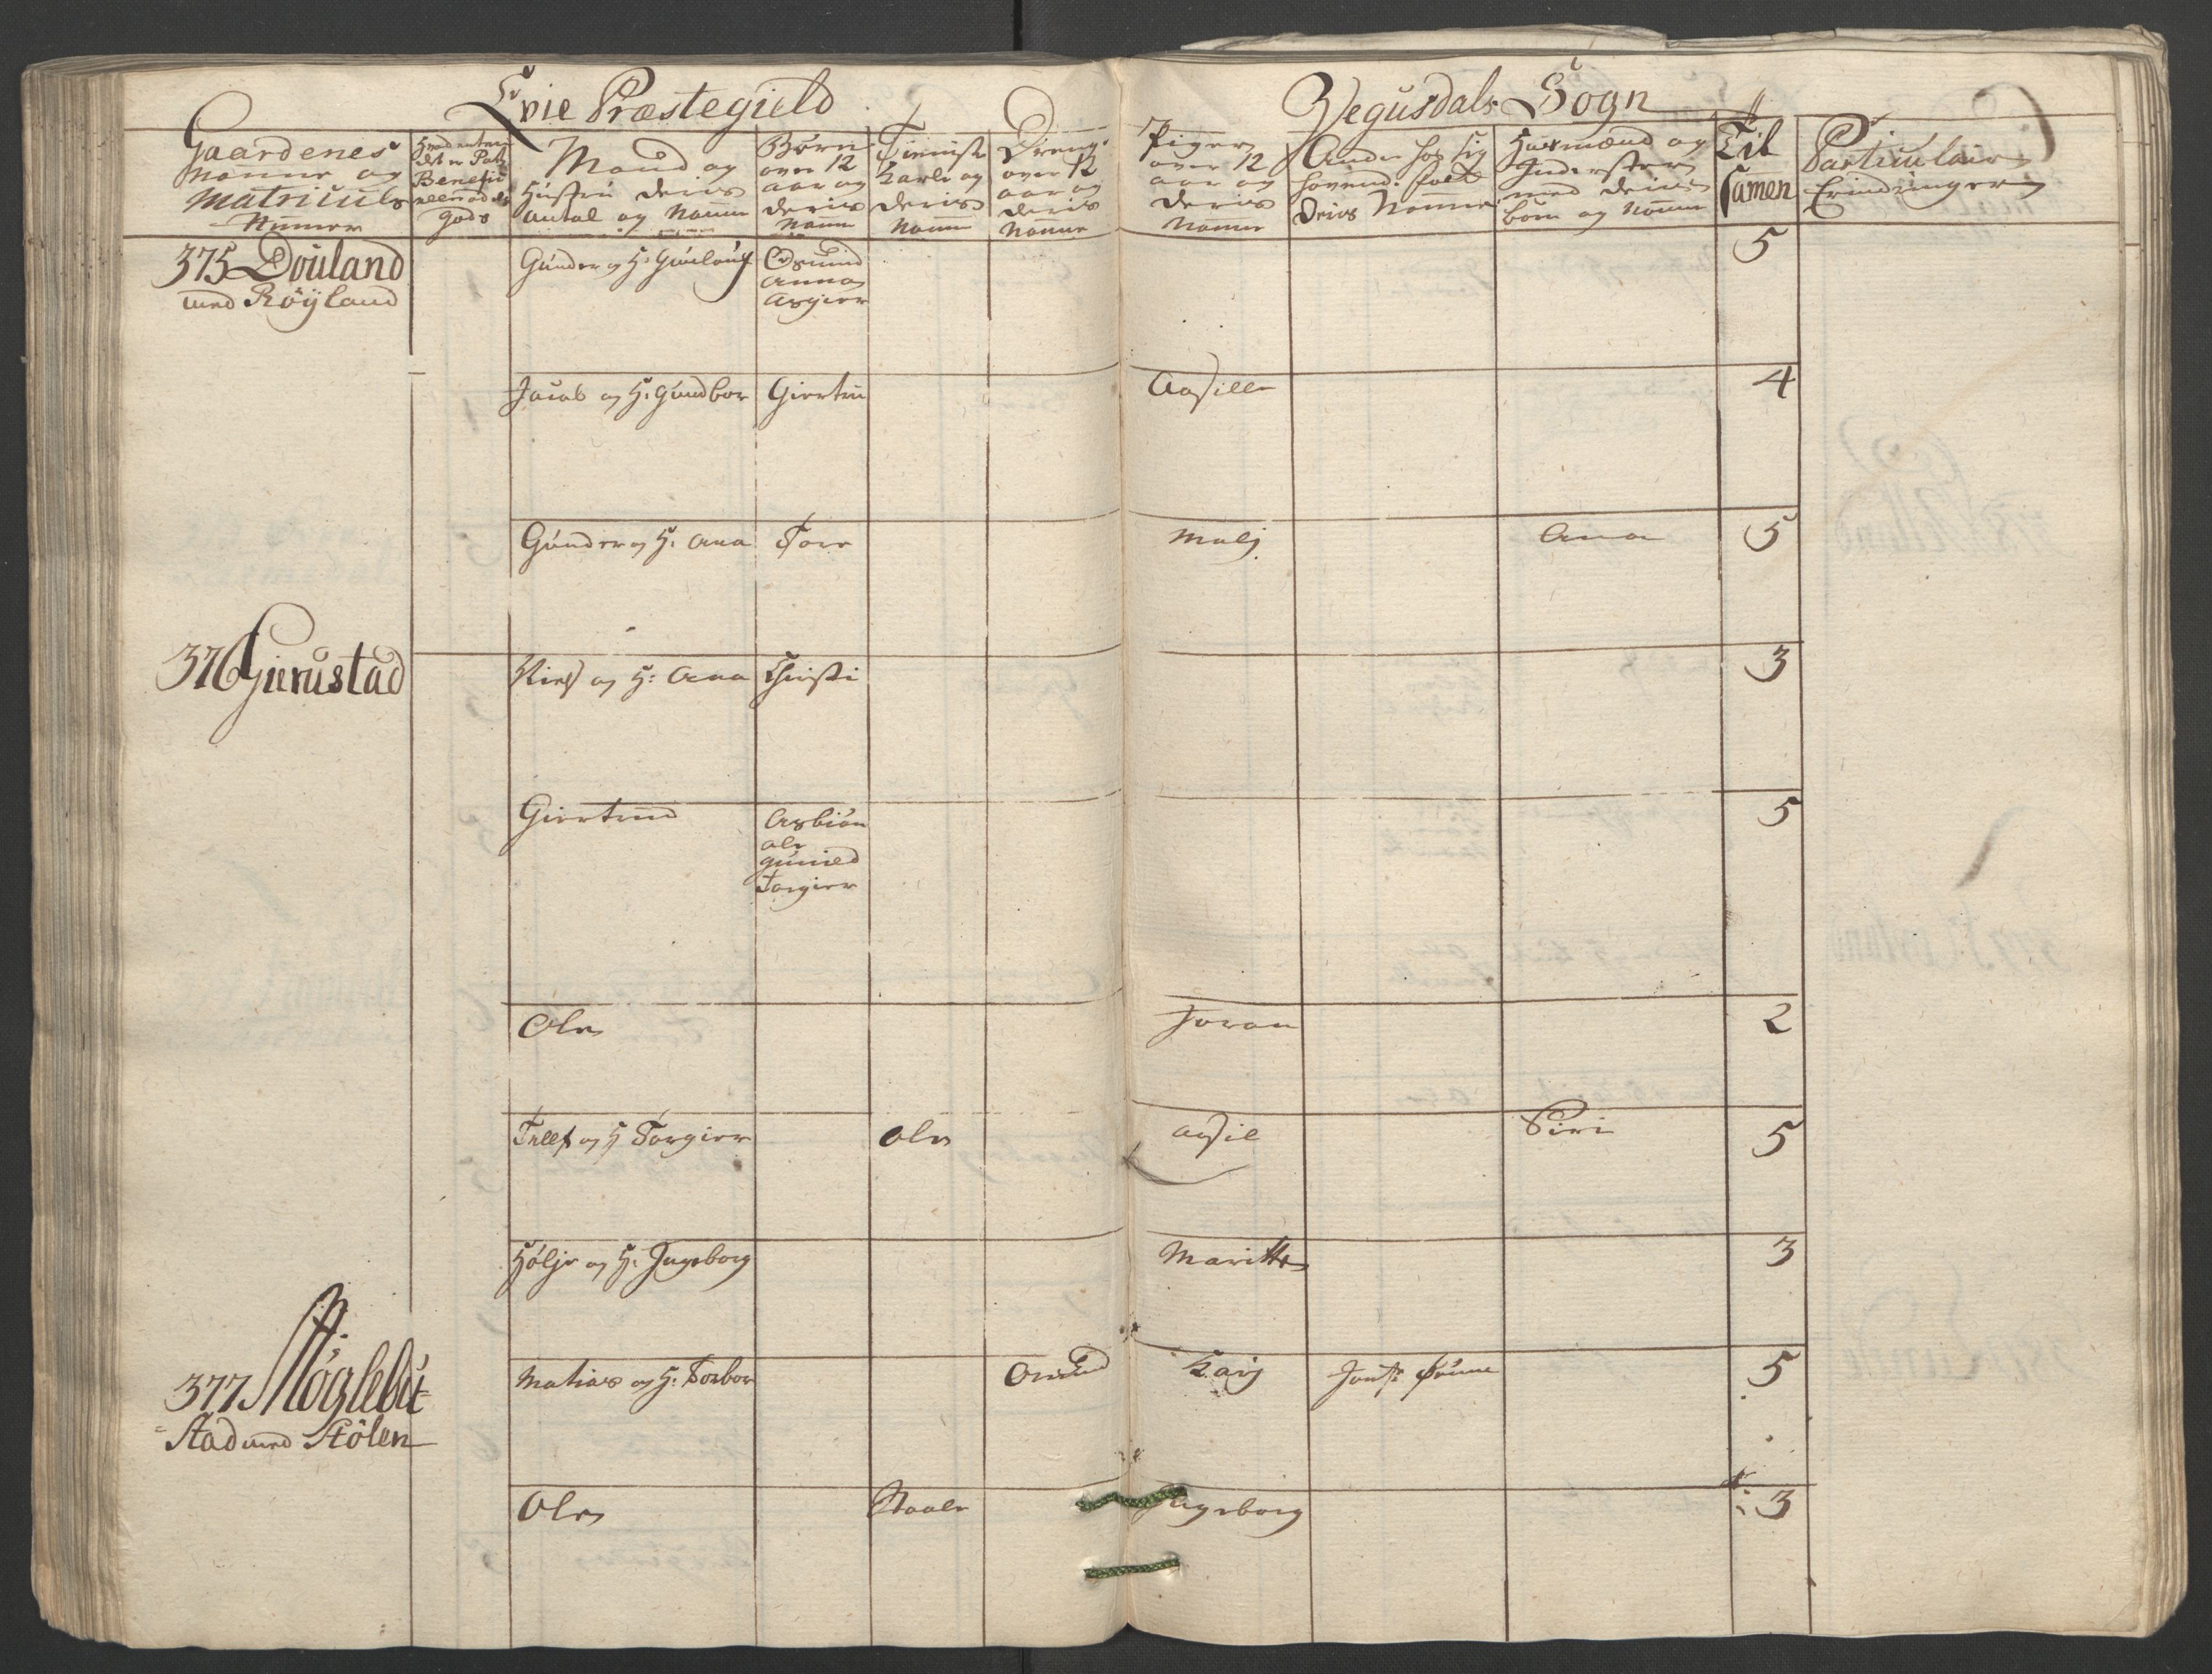 Evie Præstegield
Vegusdals Sogn
Gaardenes
Nafne og
Matriculs
Numer
Benefi
gods
Mand og
Hustru deris
antal og Nafne
Børn
over 12
aar og
deris
Nafne
Tienist
Karle og
deris
Nafne
Drenge
over 12
aar og
deris
Nafne
Piger
over 12
aar og
deris
Nafne
Andre hos sig
havend: folk
deris Nafne
Husmænd og
Inderster
med deris
børn og Nafne
Til
samen
Particulair
Erindringer
375 Douland
med Röÿland
Gunder og H: Gunloug
Osmund
Anna
Asgier
5
Jacob og H: Gundbor
Giertru
Aasille
4
Gunder og H: Ana
Tore
Malj
Ana
5
376 Gierustad
Niels og H: Ana
Christi
3
Giertrud
Asbiön
ole
gunild
Torgier
5
Ole
Joran
2
Tellef og H Torgier
ole
Aasil
Siri
5
Höljе og H: Ingeborg
Maritte
3
377 Mögleby=
=stad med Stölen
Matias og H: Torbor
Omund
Kari
5
Ole
Staale
Ingeborg
3